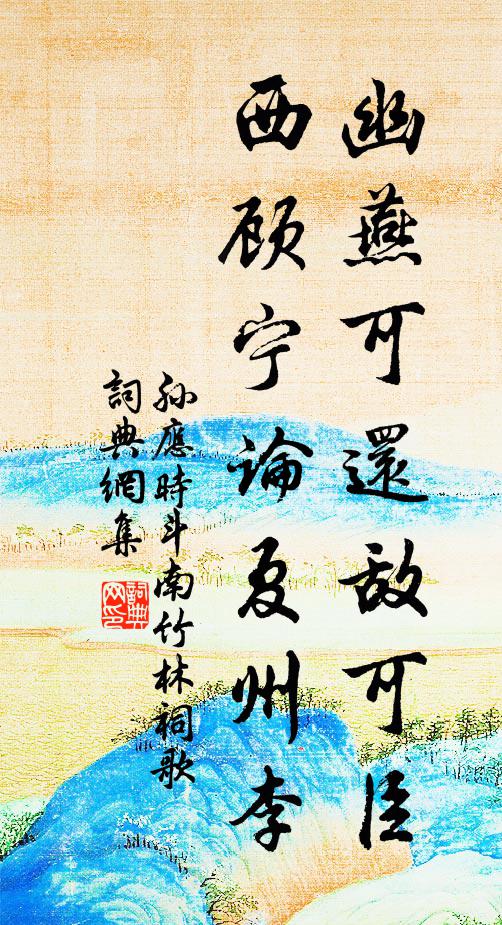 幽燕可還敌可臣
西顾宁論夏州李
孙應時斗南竹林祠歌
詞典網集
詞典网印